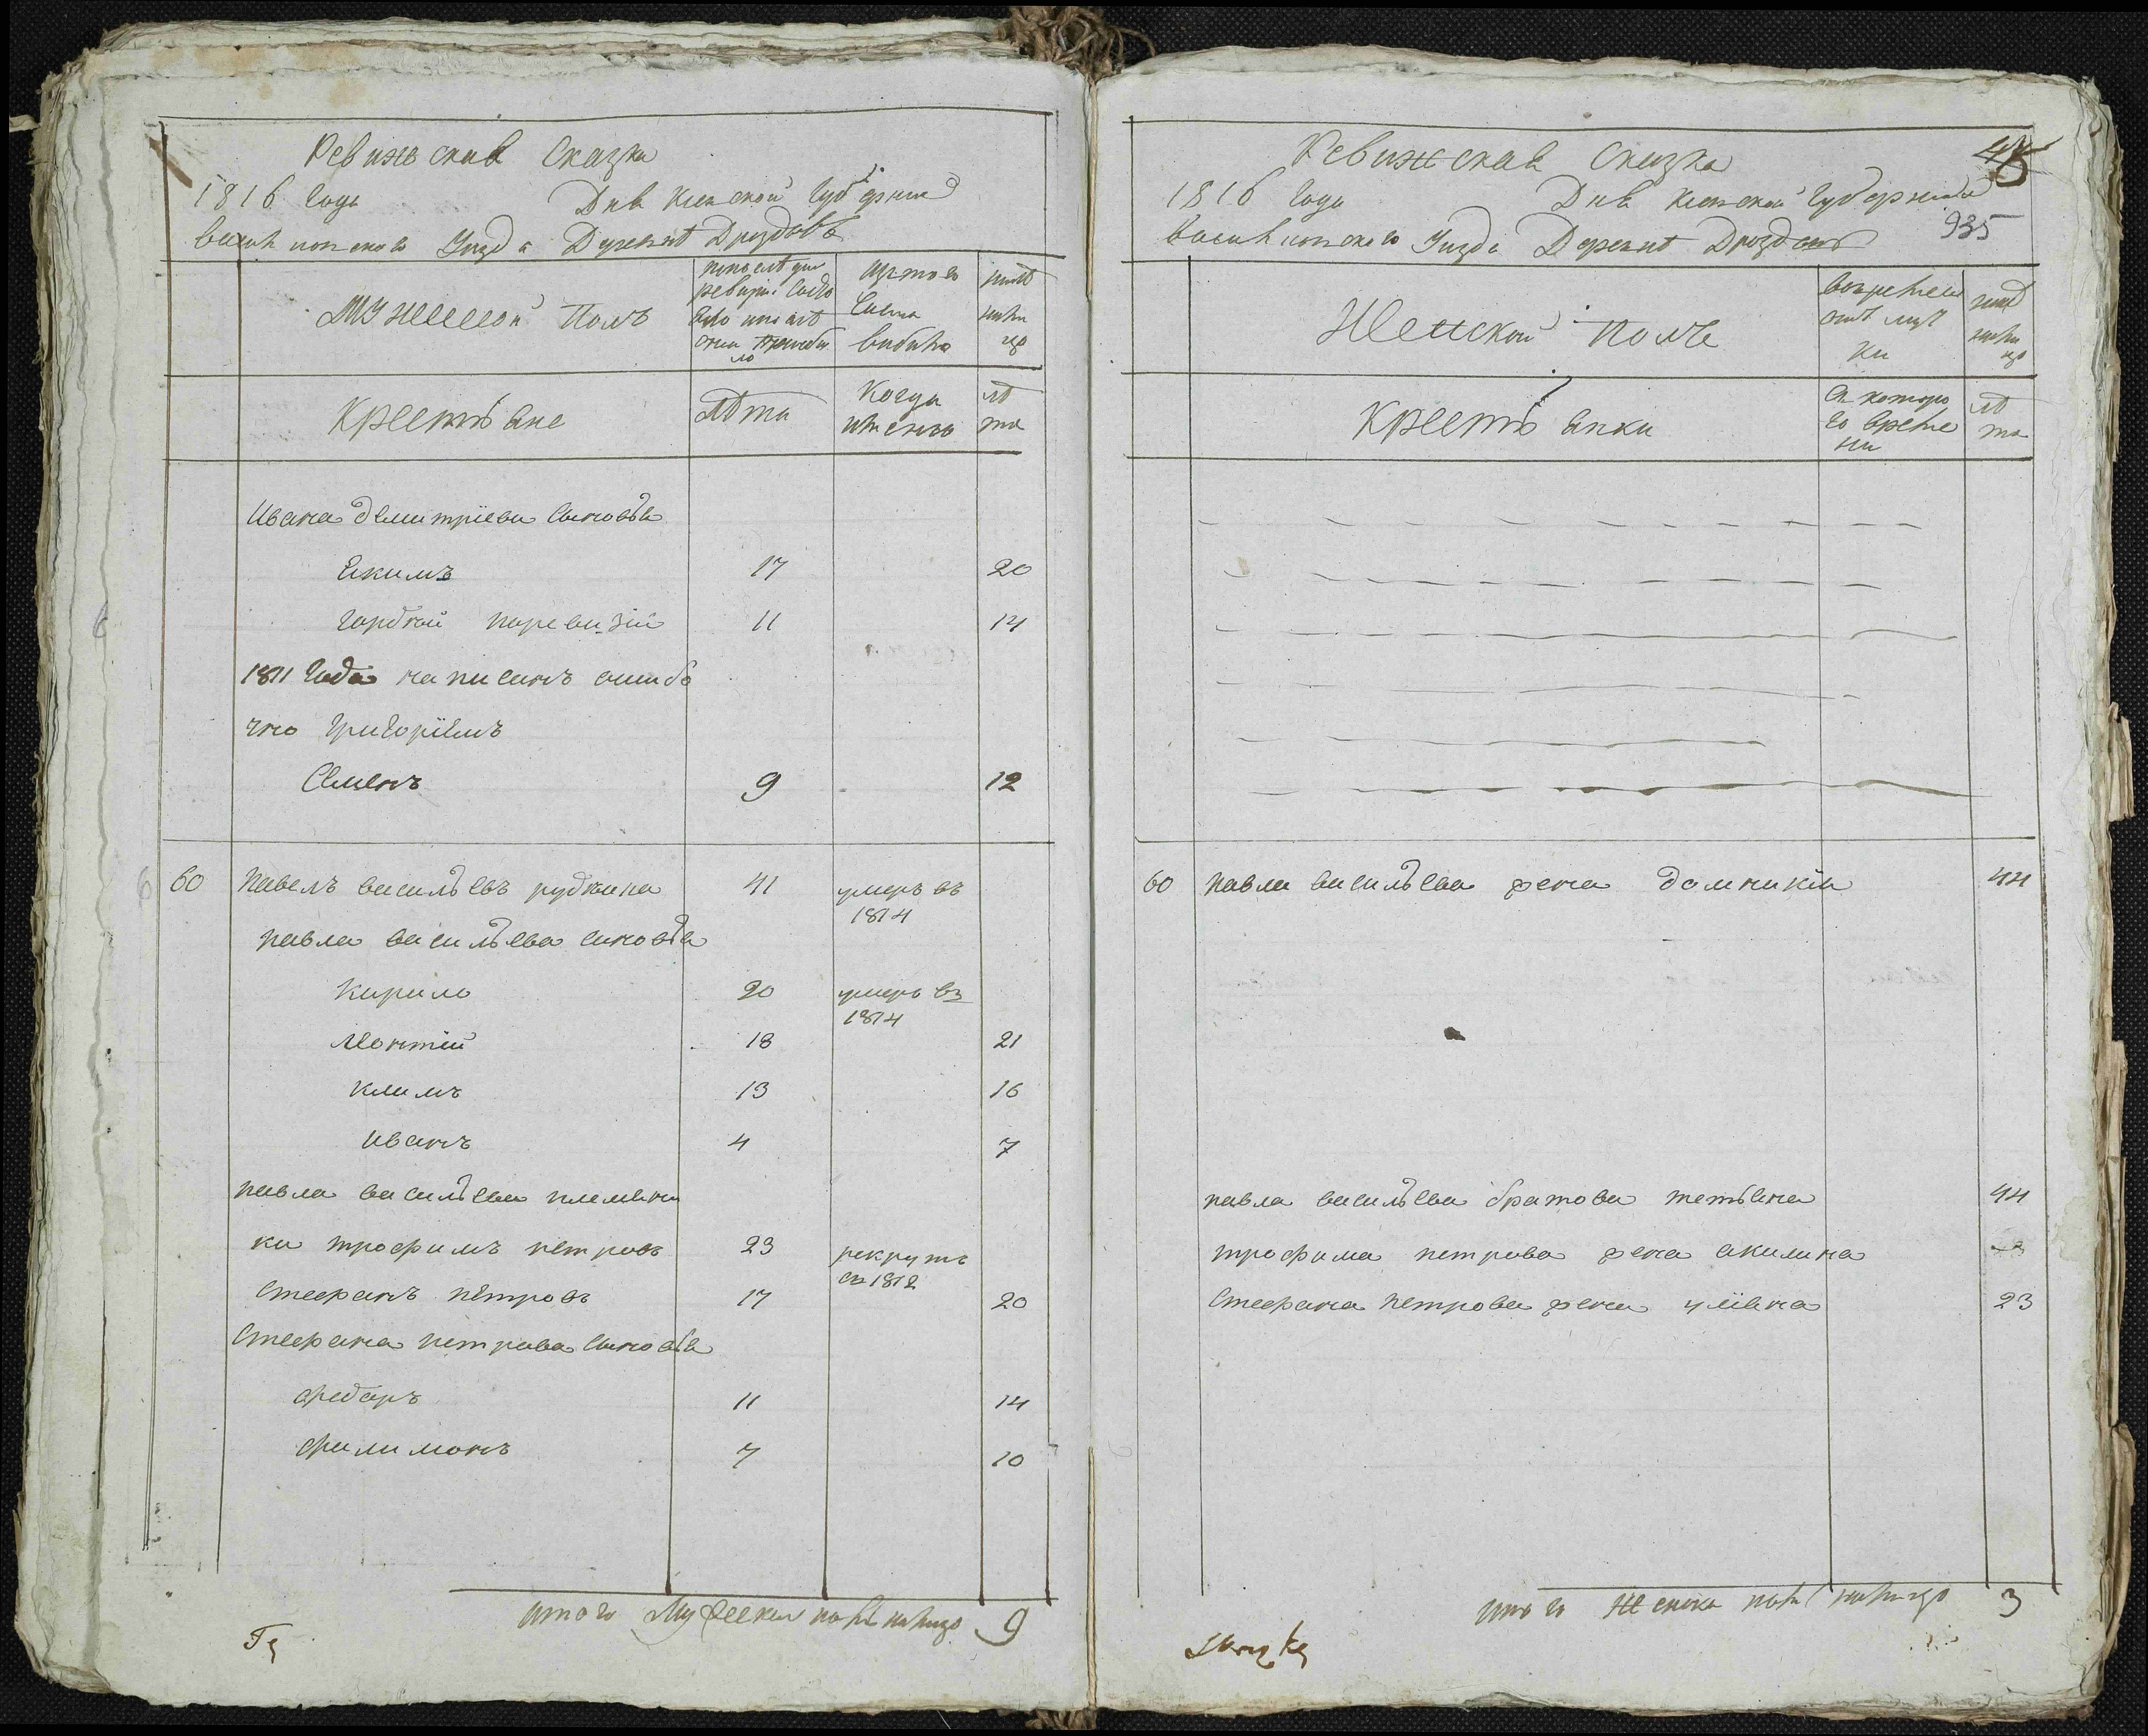 Ревижская Сказка
1816 года Дня Киевской губернии
Василковского Уезда Деревне Дроздовъ
Мужеской Полъ
изъ того
числа
выбыло
ныне
на
лицо
Крестьяне
лѣта
Когда
именно
лѣ
та
Ивана Демитріева Сыновья
Екимъ 17 20
Гордѣй поревизіи 11 14
1811 Года написанъ ошибо
чно Григоріемъ
Семенъ 9 12
60 Павелъ васильевъ рудкина 41 умеръ въ
1814
павла васильева сыновья
Кирило 20 умеръ въ
1814
Монтій 18 21
Климъ 13 16
Иванъ 4 7
павла васильева племянни
ки трофимъ петровъ 23 рекрутъ
въ 1812
Стефанъ петровъ 17 20
Стефана петрова Сыновья
федоръ 11 14
филимонъ 7 10
итого Мужеска пола налицо 9
Ревижская Сказка
1816 года Дня Киевской губернии
935
Василковского Уезда Деревне Дроздовъ
Женской полъ
во временной
отлуч
ки
ныне
нали
цо
Крестьянки
съ которо
го време
ни
лѣ
та
60 павла васильева жена домникія 44
павла васильева братова тетьяна 44
трофима петрова жена акилина
Стефана петрова жена уліяна 23
итого женска пола налицо 3